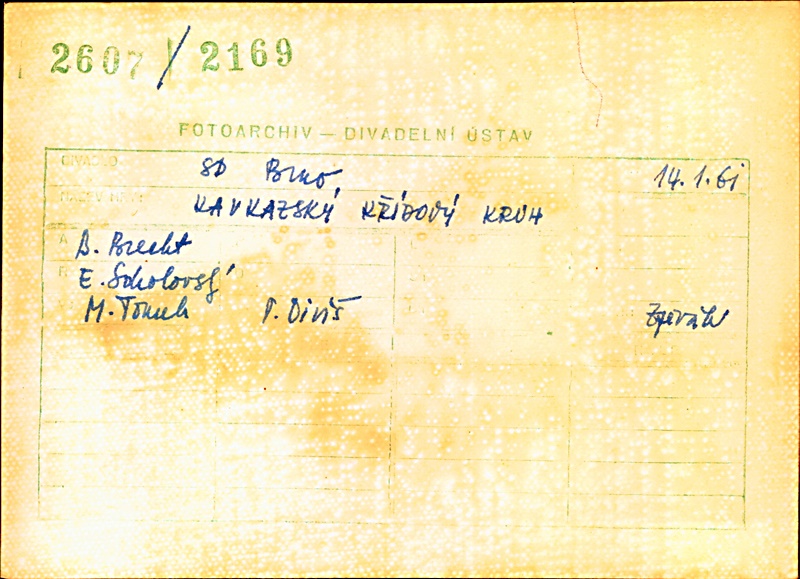 2607 / 2169
FOTOARCHIV — DIVADELNÍ ÚSTAV
DIVADLO SD Brno 14.1.61
NÁZEV HRY KAVKAZSKÝ KŘÍDOVÝ KRUH
A B. Brecht
R E. Sokolovský
M. Tomek P. Diviš Zpěvák